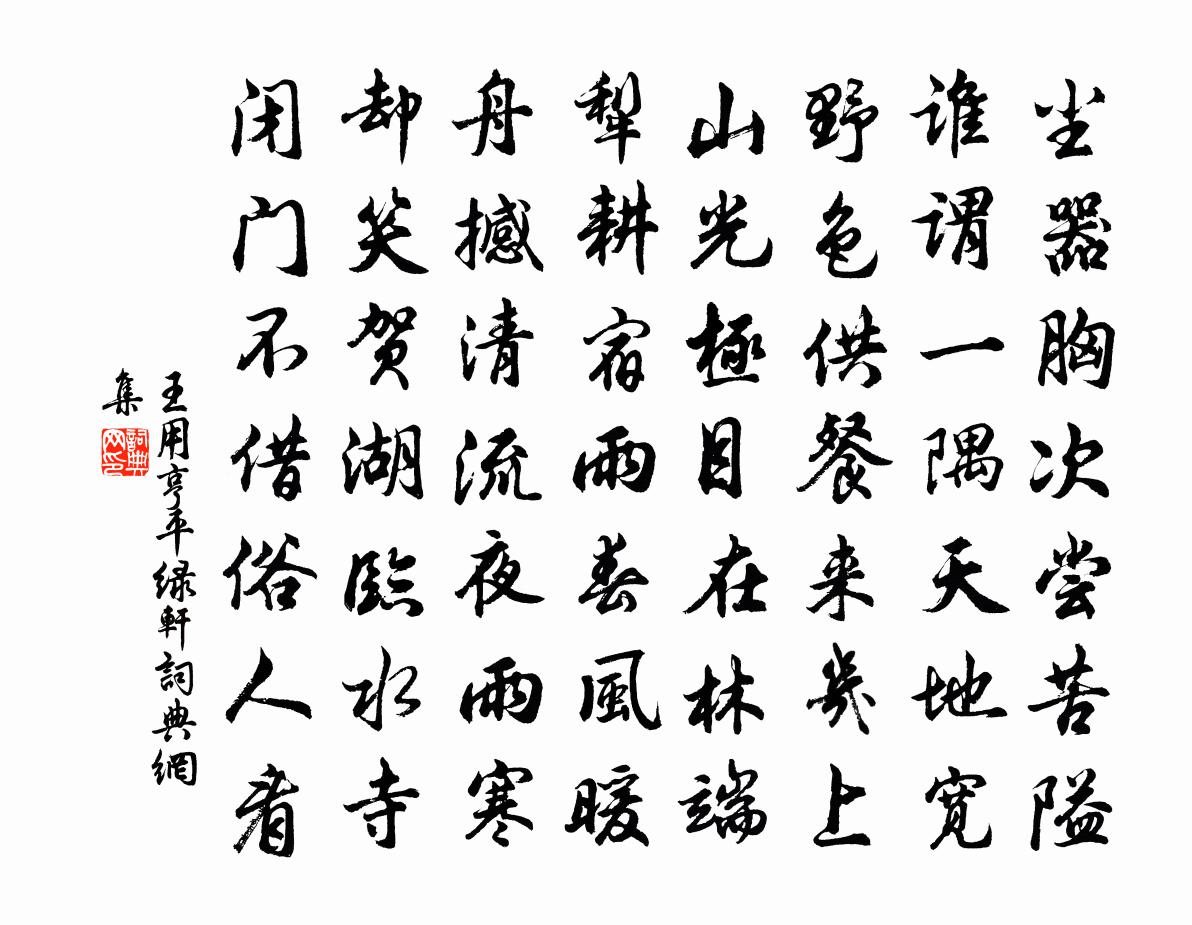 尘嚣胸次尝苦隘
谁谓一隅天地宽
野色供餐来几上
山光极目在林端
犁耕宿雨春风暖
舟撼清流夜雨寒
却笑贺湖临水寺
闭门不借俗人看
王用亨平绿軒詞典網
集
詞典网印